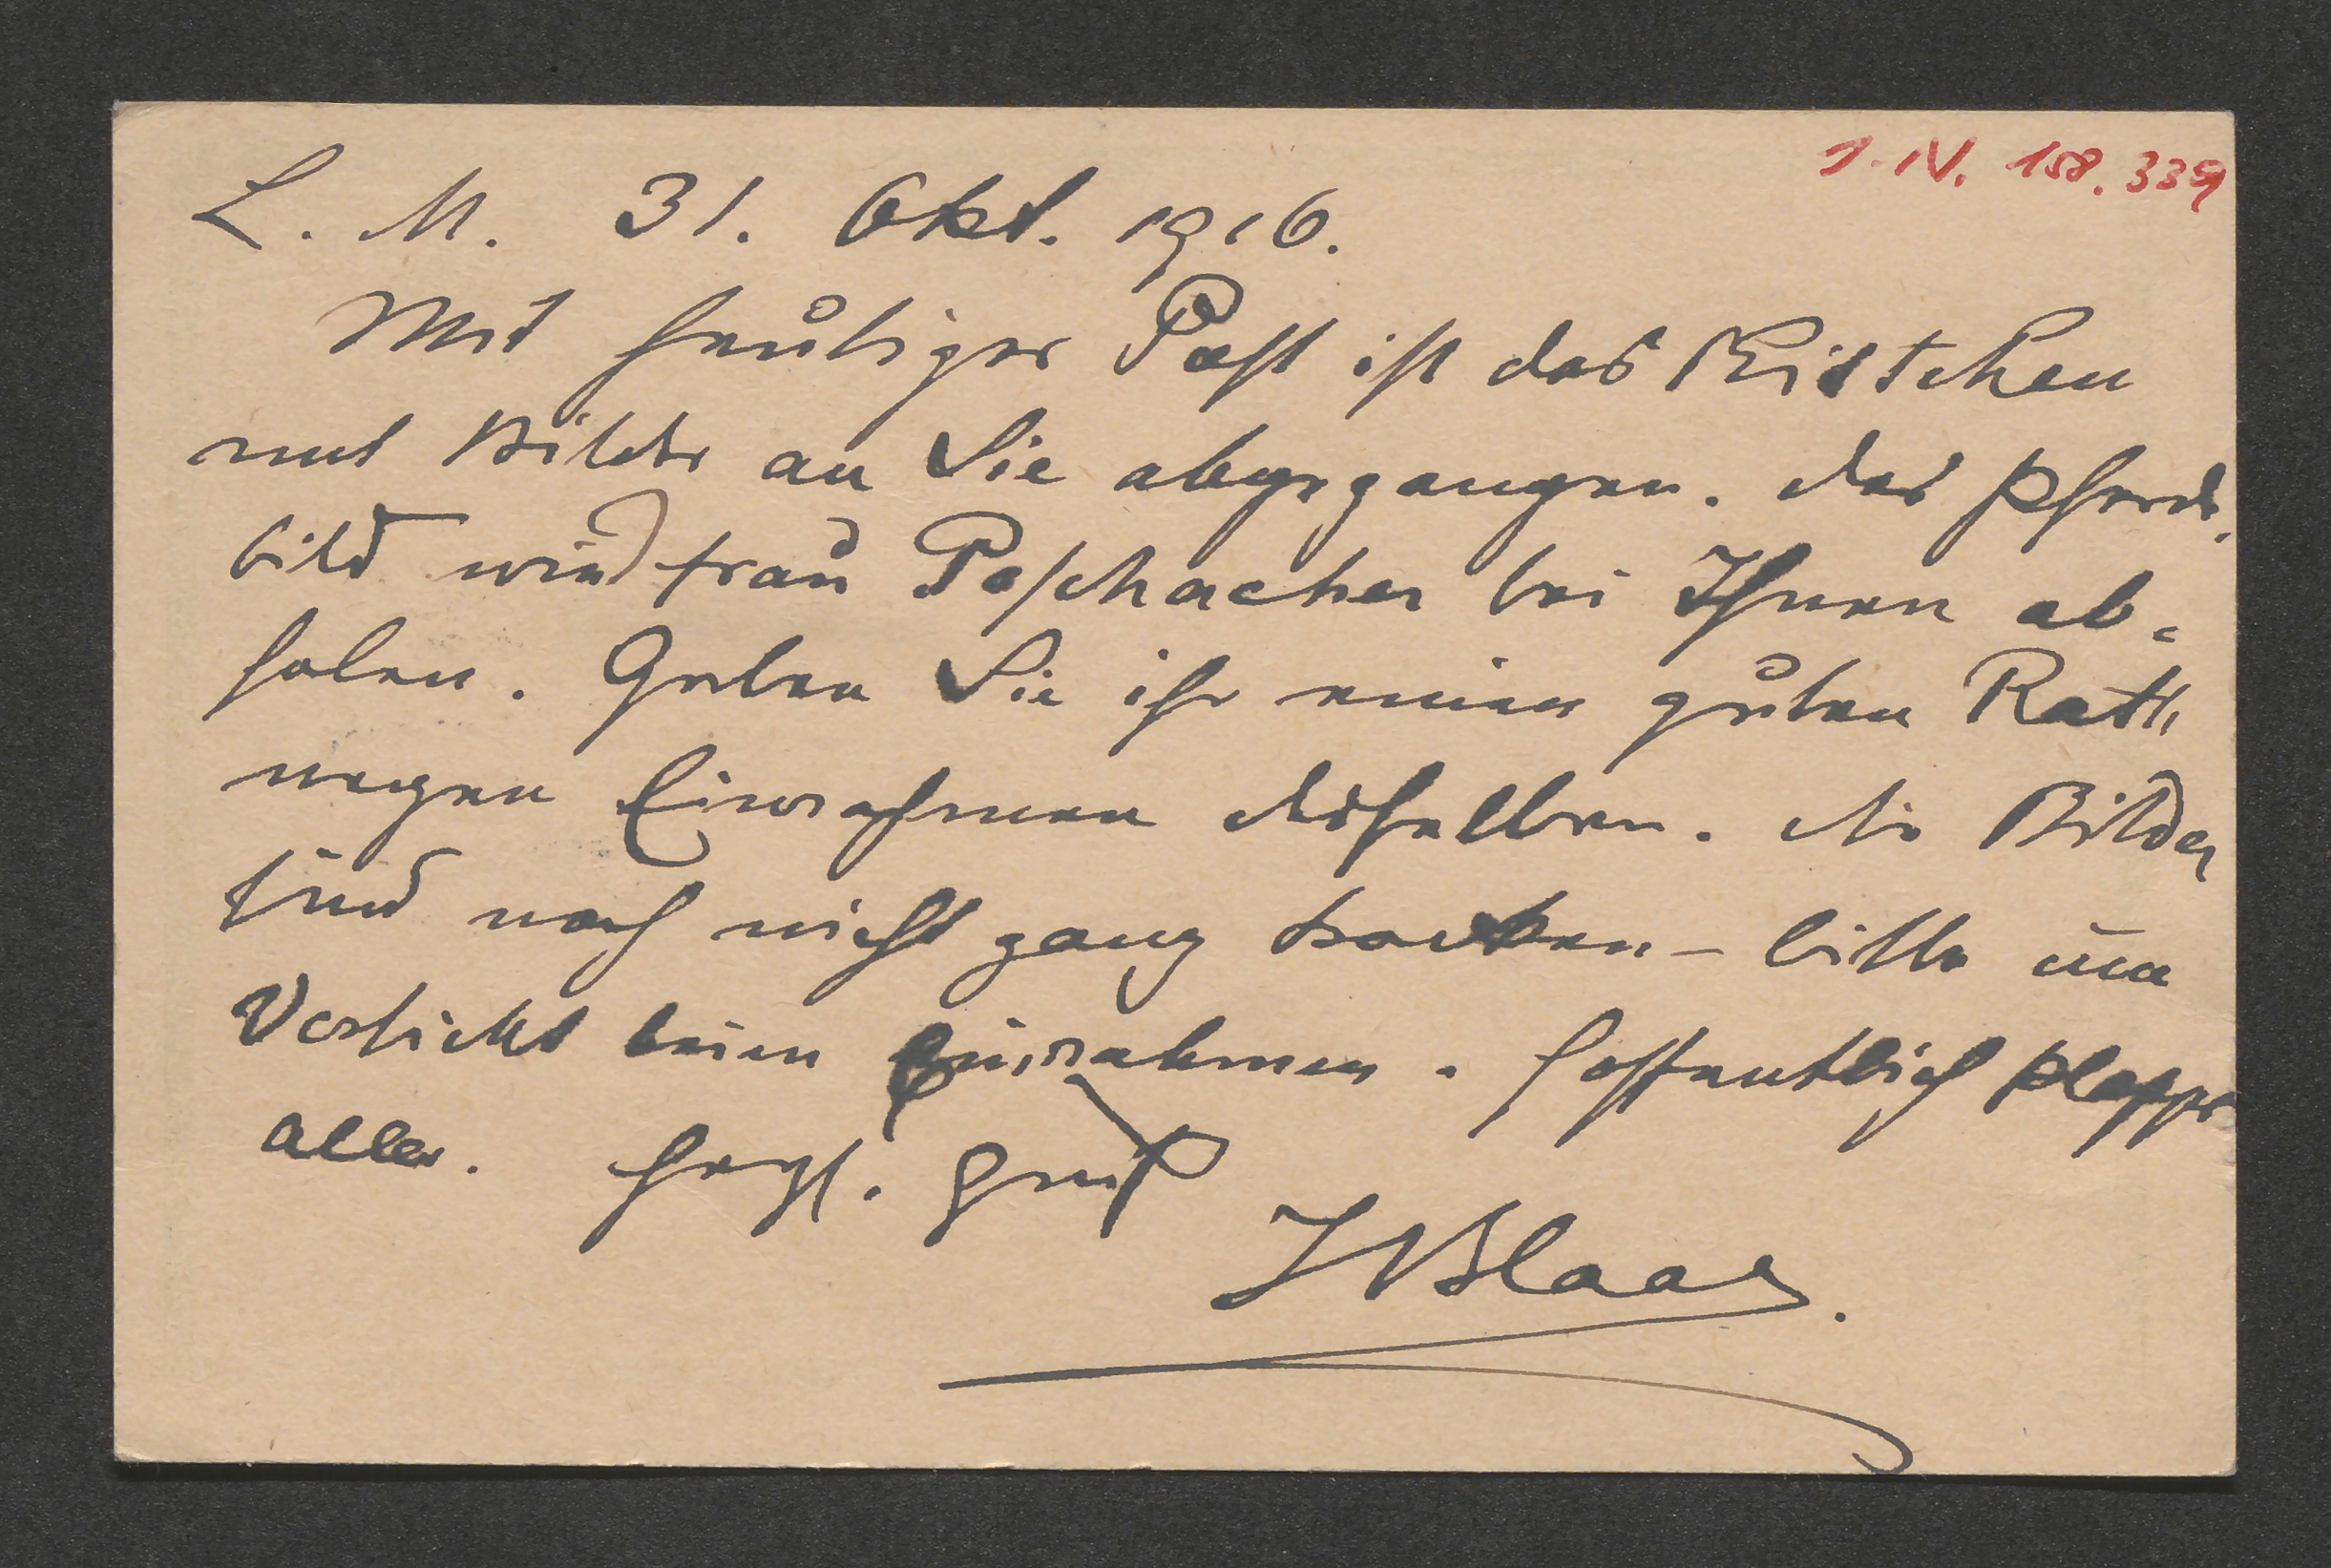 I. N. 158.339
L. M. 31. Okt. 1916.
Mit heutiger Post ist das Kistchen
mit Bilder an Sie abgegangen. das Pferde-
bild wird Frau Poschacher bei Ihnen ab-
holen. Geben Sie ihr einen guten Rath
wegen Einrahmen desselben. die Bilder
sind noch nicht ganz trocken – bitte um
Vorsicht beim Einrahmen. hoffentlich klappt
alles. herzl. Gruß
J Blaas.